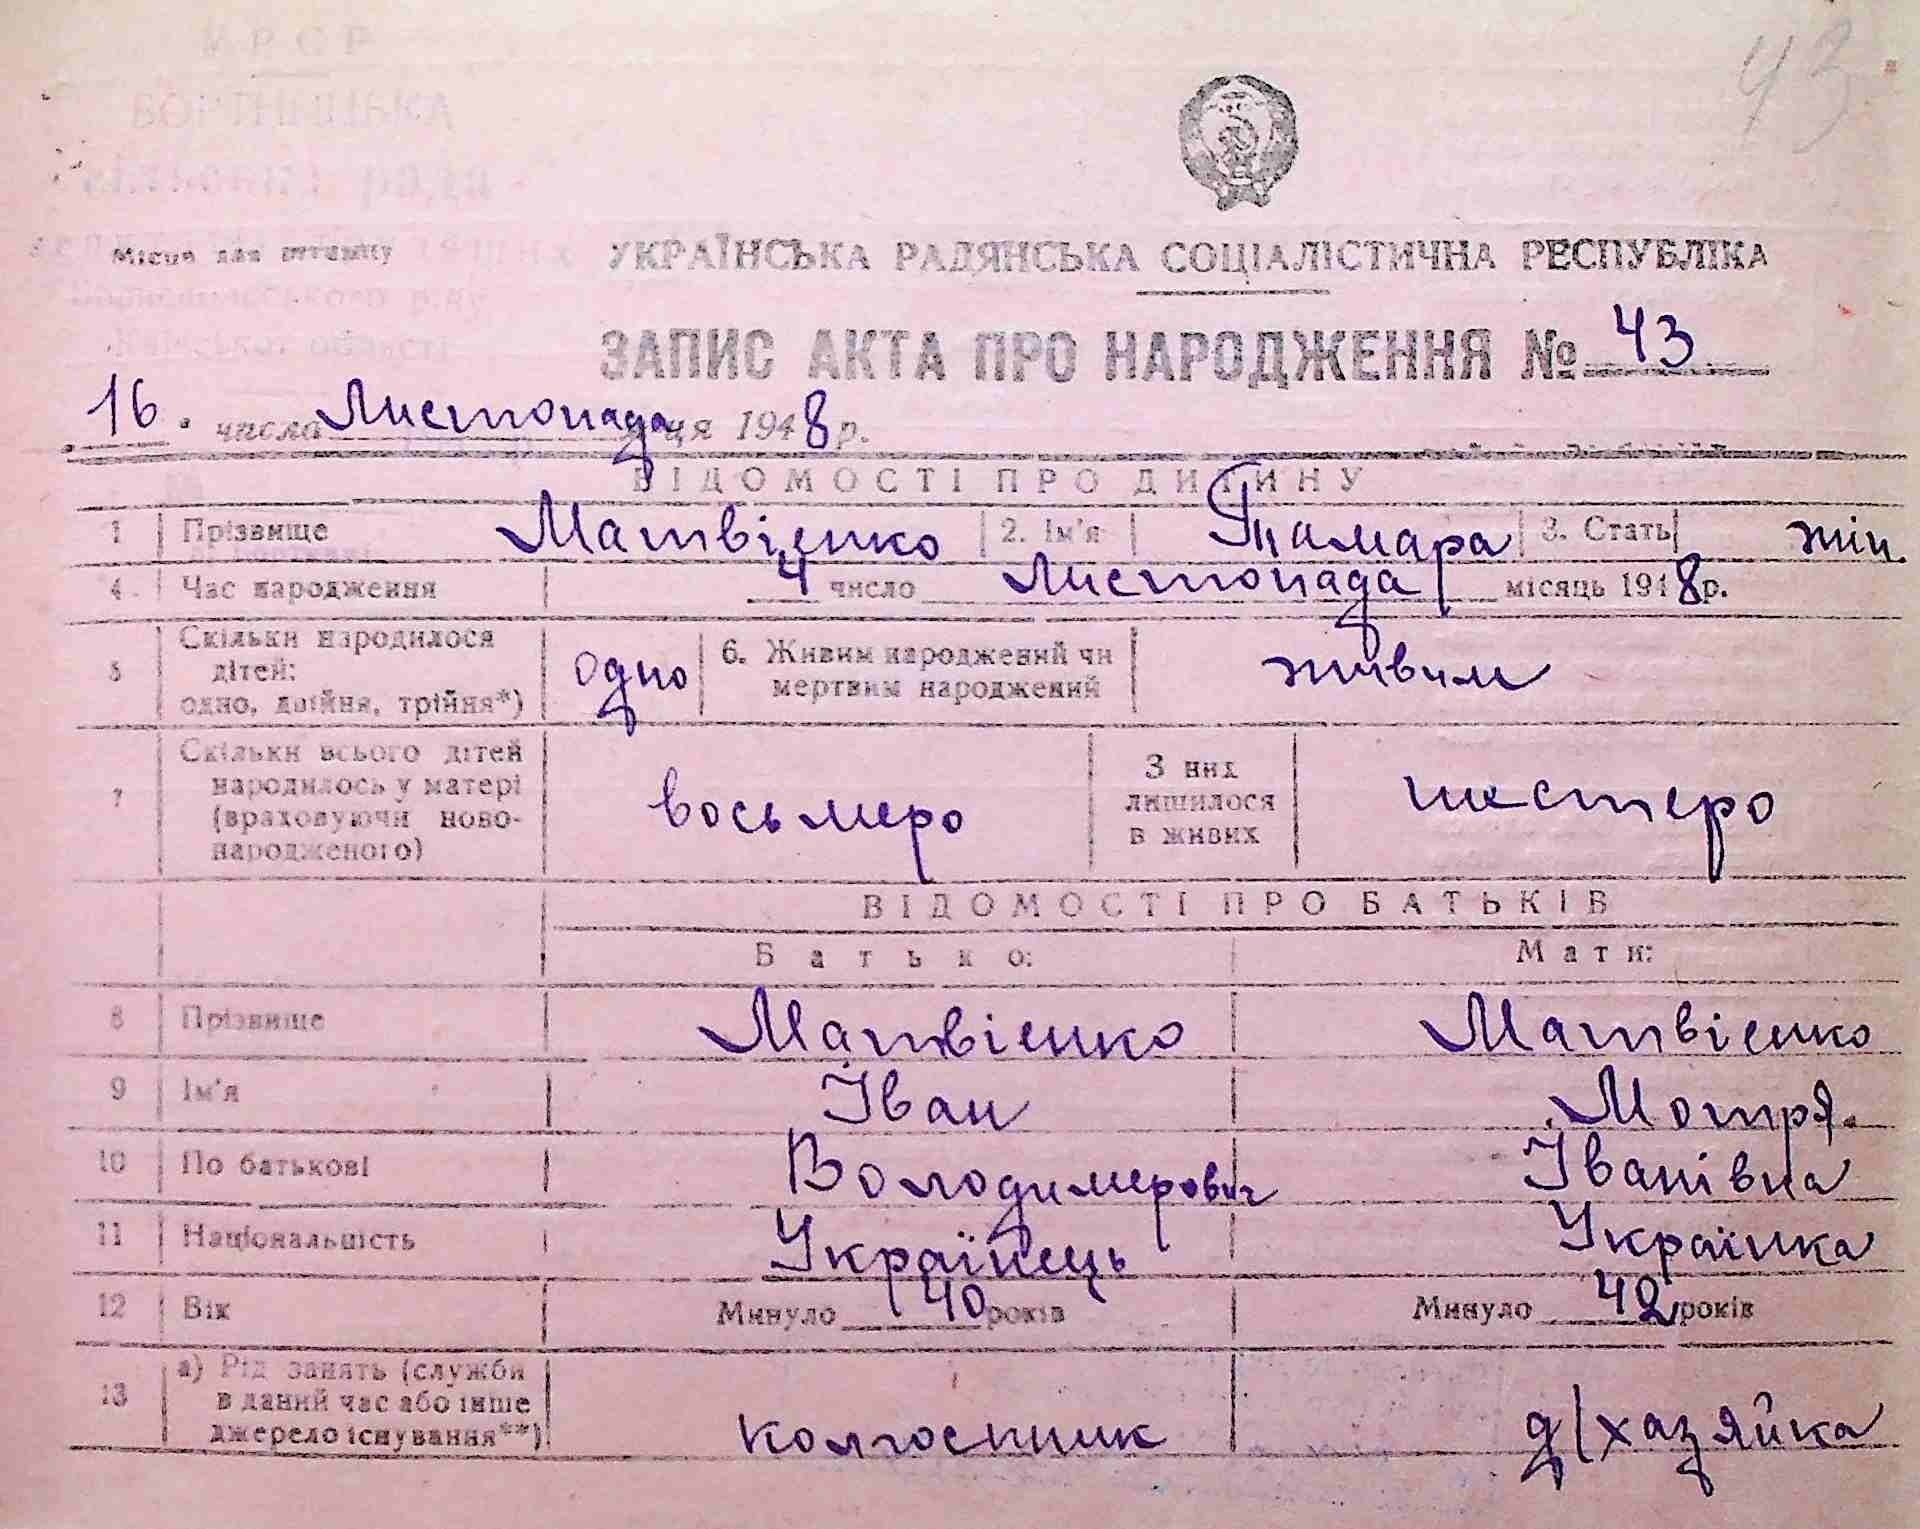 43
УРСР
БОРТНИЦЬКА
сільська рада
Місце для штампу
Київської області
УКРАЇНСЬКА РАДЯНСЬКА СОЦІАЛІСТИЧНА РЕСПУБЛІКА
ЗАПИС АКТА ПРО НАРОДЖЕННЯ № 43
16 числа Листопада ця 1948 р.
ВІДОМОСТІ ПРО ДИТИНУ
1 Прізвище Матвієнко 2. Ім'я Тамара 3. Стать жін.
4 Час народження 4 число Листопада місяць 1948 р.
5 Скільки народилося дітей: одно, двійня, трійня*) одно 6. Живим народжений чи мертвим народжений живим
7 Скільки всього дітей народилось у матері (враховуючи новонародженого) восьмеро З них лишилося в живих шестеро
ВІДОМОСТІ ПРО БАТЬКІВ
Батько: Мати:
8 Прізвище Матвієнко Матвієнко
9 Ім'я Іван Мотря.
10 По батькові Володимерович Іванівна
11 Національність Українець Українка
12 Вік Минуло 40 років Минуло 42 років
13 а) Рід занять (служби в даний час або інше джерело існування**) колгоспник д/хазяйка